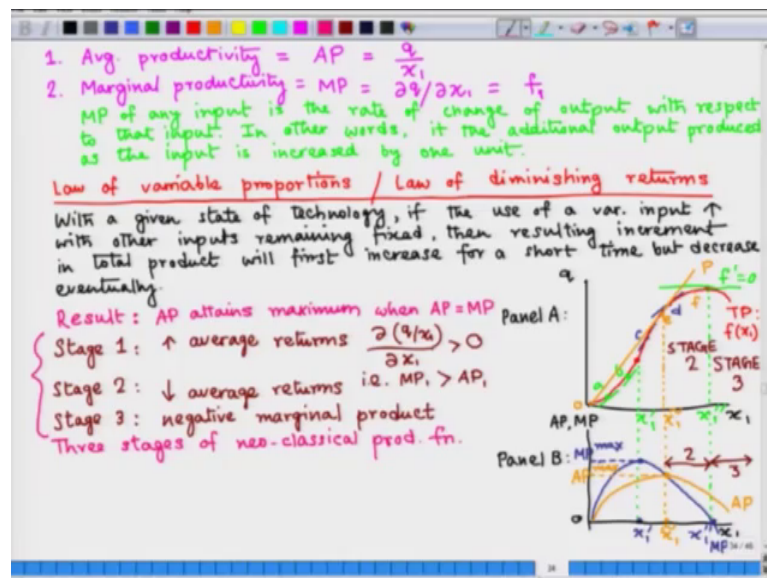 1. Avg. productivity = AP = q/x₁
2. Marginal productivity = MP = ∂q/∂x₁ = f₁
MP of any input is the rate of change of output with respect
to that input. In other words, it the additional output produced
as the input is increased by one unit.
Law of variable proportions / Law of diminishing returns
With a given state of technology, if the use of a var. input ↑
with other inputs remaining fixed, then resulting increment
in total product will first increase for a short time but decrease
eventually.
Result: AP attains maximum when AP=MP
Stage 1: ↑ average returns ∂(q/x₁)/∂x₁ > 0
i.e. MP₁ > AP₁
Stage 2: ↓ average returns
Stage 3: negative marginal product
Three stages of neo-classical prod. fn.
Panel A:
q
P
f'=0
f
d
c
b
a
TP:
f(x₁)
STAGE
2
STAGE
3
0
x₁' x₁'' x₁''' x₁
AP, MP
Panel B:
MP max
AP max
2
3
AP
0
x₁' x₁'' x₁''' x₁
MP
34 / 45
34